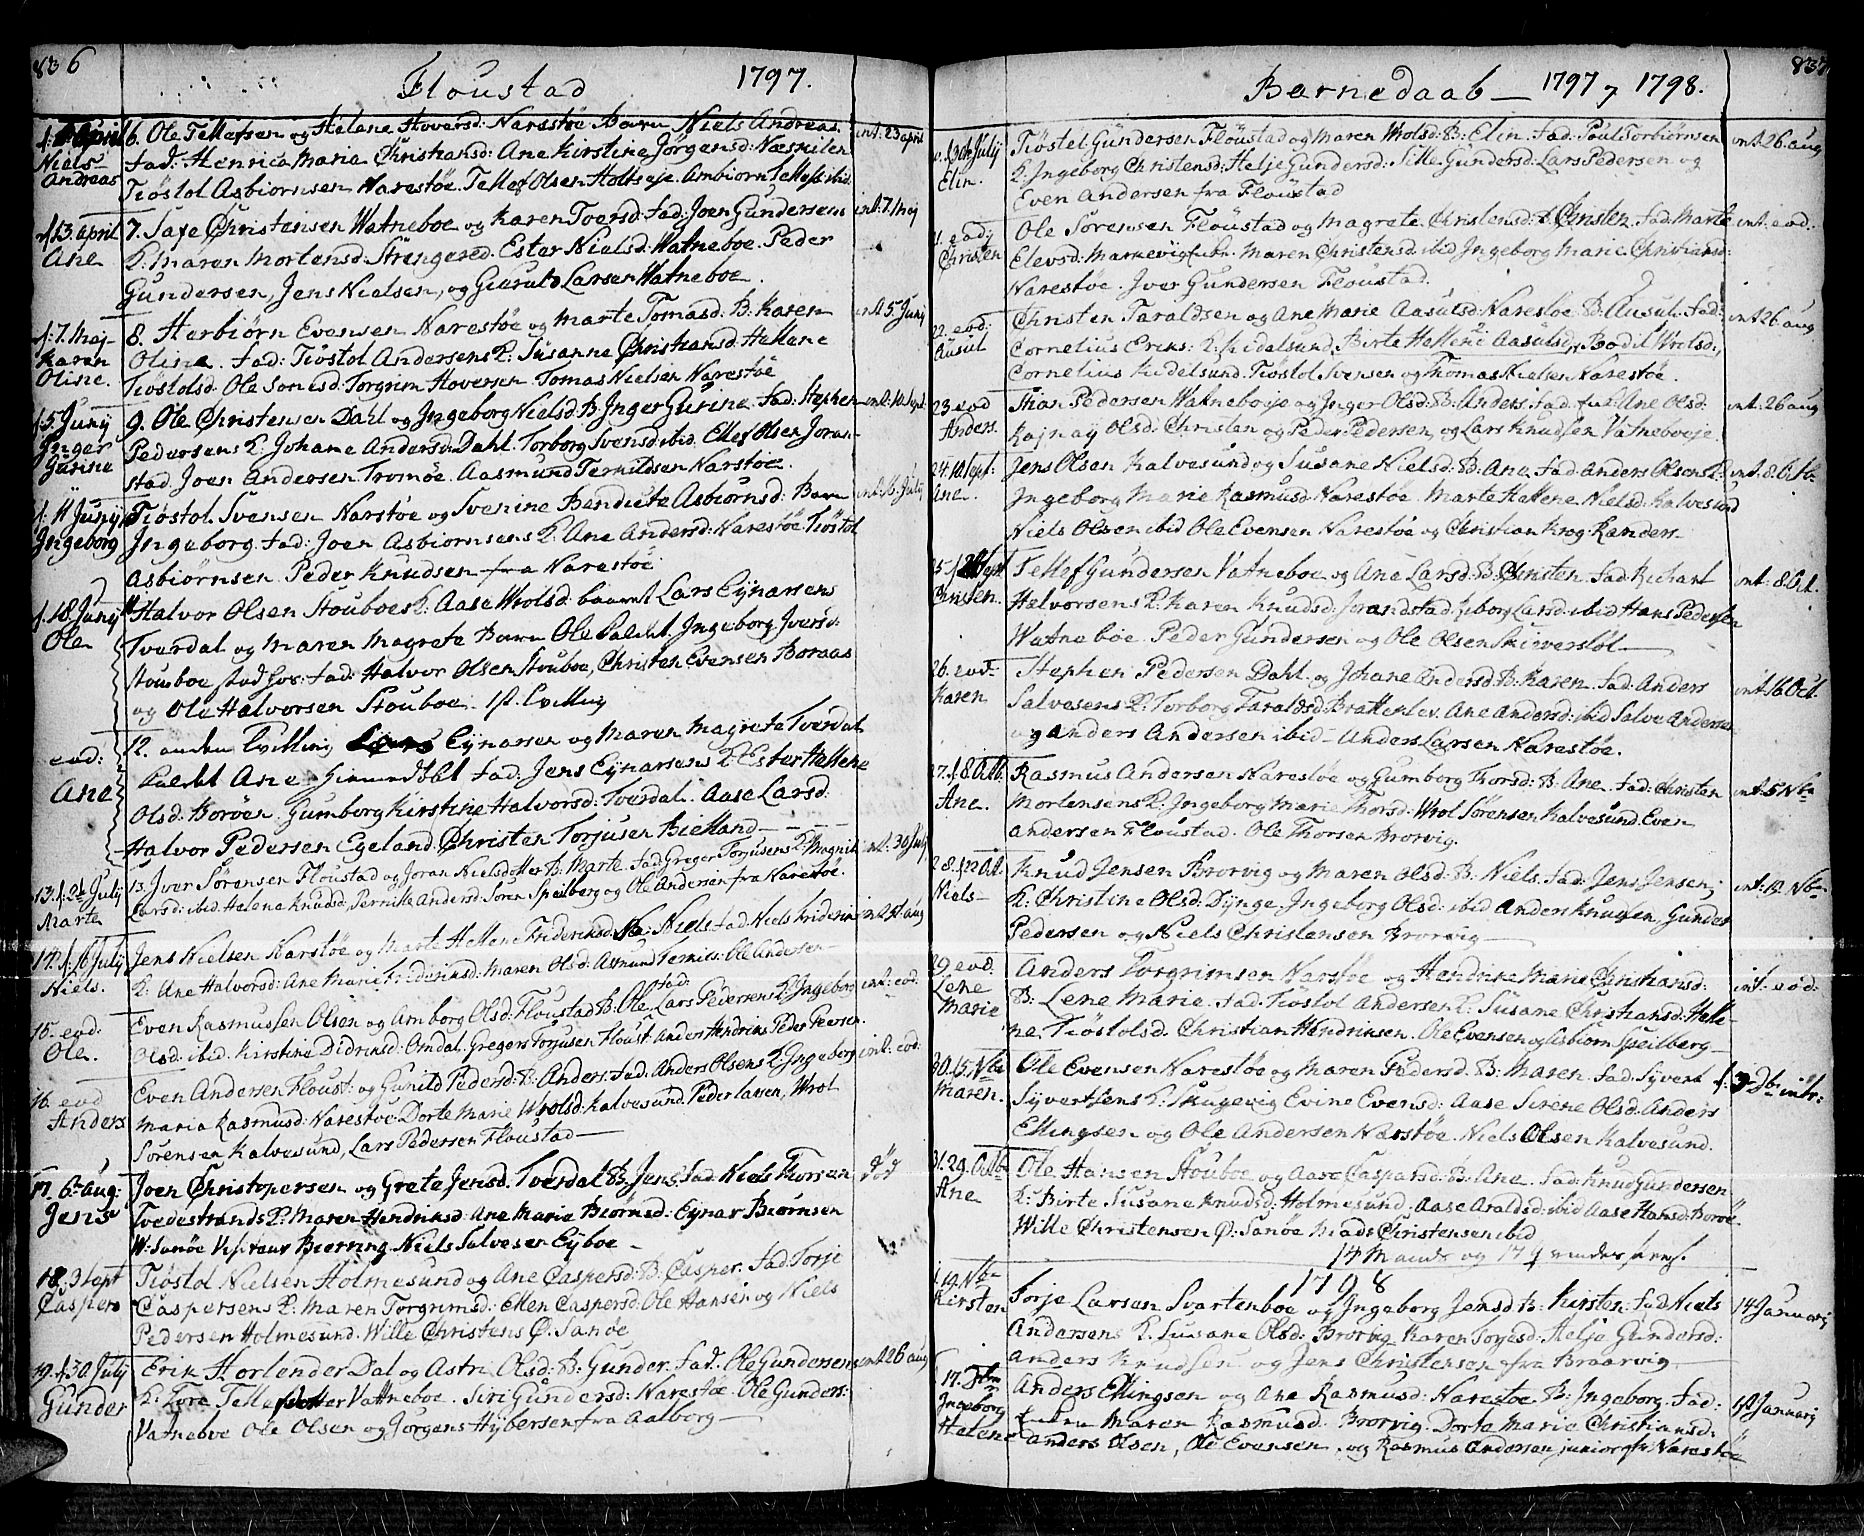 836
Floustad 1797.
Niels Andreas
6. Ole Tellefsen og Helene Hoversd: Narestøe Barn Niels Andreas. int: 23 april
fad: Henrica Marie Christiansd: Ane Kirstine Jørgensd: Næskilen
Tiøstol Asbiørnsen Narestøe. Tellef Olsen Holtseje. Ambiorn Tellefs: ibid.
f. 13. april Ane
7. Saxe Christensen Watneboe og Karen Toersd: fad: Joen Gundersens int: 7 Mej
K: Maren Mortensd: Strengered. Ester Nielsd: Watneboe. Peder
Gundersen, Jens Nielsen, og Giæruld Larsen Watneboe.
f. 7. Mej Karen Oline.
8. Herbiørn Evensen Narestøe og Marte Tomasd: B: Karen int: 5 Junij
Oline. fad: Tiøstol Andersens K: Susanne Christiansd: Hellene
Tiøstolsd: Ole Tomasd: Torgrim Hoversen. Tomas Nielsen Narestøe
f. 5. Junij Jnger Gurine
9. Ole Christensen Dahl og Jngeborg Nielsd: B: Jnger Gurine. fad: Stephen int: 10 Sept
Pedersens K: Johane Andersd: Dahl. Torborg Svensd: ibid. Ellef Olsen Joran-
stad. Joen Andersen Tromøe. Aasmund Terkildsen Narstøe.
f. 11 Junij Jngeborg
Tiøstol Svensen Narstøe og Svenine Bendicte Asbiørnsd: Barn int: 16. Julij
Jngeborg. fad: Joen Asbiørnsens K: Ane Andersd: Narestøe. Tiøstol
Asbiørnsen Peder Knudsen fra Narestøe
f. 18. Junij Ole
Halvor Olsen Stouboes K: Aase Wrolsd: baaret Lars Eynarsens
Tverdal og Maren Magrete Barn Ole kaldet. Jngeborg Jversd:
Stouboe stod hos. fad: Halvor Olsen Stouboe, Christen Evensen Boraas
og Ole Halvorsen Stouboe. 1st. Tvilling
eod: Ane
12. anden Tvilling Lars Eynarsen og Maren Magrete Tverdal
kaldet Ane. fad: Jens Eynarsens K: Ester Hellene
Olsd: Borøen. Gumborg Kirstine Halvorsd: Tverdal. Aase Larsd:
Halvor Pedersen Egeland. Christen Torjusen Bielland
13. f. 2d Julij Marte
13. Jver Sørensen Floustad og Joran Nielsdotter B: Marte. fad: Greger Torjusens K: Magnil int: 30 Julij
Larsd: ibid. Helene Knudsd, Pernille Andersd: Søren Speilberg og Ole Andersen fra Narestøe.
14. f. 16 Julij Niels.
Jens Nielsen Narstøe og Marte Hellene Friderichsd. B: Niels. fad: Niels Friderich int: aug
K: Ane Halvorsd: Ane Marie Friderichsd: Maren Olsd: Asmund Terkils: Ole Andersen
15. eod: Ole.
Even Rasmussen Olsen og Amborg Olsd: Floustad B: Ole. fad: Lars Pedersens K: Jngeborg int: eod.
Olsd: ibid. Kirstine Didriksd: Omdal. Gregers Torjusen Floust. Anders Hendriks. Peder Peersen.
16. eod Anders
Even Andersen Floust: og Gunild Pedersd: B: Anders. fad: Anders Olsens K: Jngeborg int: eod:
Maria Rasmusd: Narestøe. Dorte Marie Wrolsd: Kalvesund. Peder Larsen, Wrol
Sørensen Kalvesund, Lars Pedersen Floustad
17. 6te aug: Jens
Joen Christophersen og Grete Jensd: Tverdal B: Jens. fad: Niels Thorsen død
Tvedestrands K: Maren Hendriksd: Ane Marie Biørnsd: Eynar Biørnsen
W: Sanøe Bierring. Niels Salvesen Eyboe
18. 3 Sept Casper
Tiøstol Nielsen Holmesund og Ane Caspersd: B: Casper. fad: Torje
Caspersens K: Maren Torgrimsd: Ellen Caspersd: Ole Hansen og Niels
Pedersen Holmesund. Wille Christens Ø: Sanøe
19. f. 30 Julij Gunder
Erik Horlender Dal og Astri Olsd: B: Gunder. fad: Ole Gundersens int: 26 aug
K: Tore Tellefsdotter Vatneboe. Siri Gundersd: Narestøe. Ole Gunders:
Vatneboe Ole Olsen og Jørgens Hybersen fra Aalborg

837
Barnedaab 1797 og 1798.
Julij Elin.
Tiøstel Gundersen Floustad og Maren Wrolsd: B: Elin. fad: Povl Torbiørnsen int: 26 aug
K: Jngeborg Christensd: Helje Gundersd: Sille Gundersd: Lars Pedersen og
Even Andersen fra Floustad
21. eod Christen
Ole Sørensen Floustad og Magrete Christensd: B: Christen. fad: Marte int: eod:
Elevsd: Markevig frembr: Maren Christensd: ibid Jngeborg Marie Christiansd:
Narestøe. Jver Gundersen Floustad.
22. eod: Ausul
Christen Taraldsen og Ane Marie Aasulsd: Narestøe B: Ausul. fad: int: 26 aug
Cornelius Eriks: K: Kidelsund. Birte Hellene Aasulsd, Bodil Wrolsd,
Cornelius Kidelsund. Tiøstol Svensen og Thomas Nielsen Narestøe.
23 eod Anders.
Thian Pedersen Watneboeje og Jnger Olsd: B: Anders. fad: Ane Olsd: int: 26 aug
Rajnay Olsd: Christen og Peder Pedersen, og Lars Knudsen Vatneboeje.
24. 10 Sept. Ane.
Jens Olsen Kalvesund og Susane Nielsd: B: Ane. fad: Anders Olsens K: int: 8 Octb
Jngeborg Marie Rasmusd: Narestøe. Marte Hellene Nielsd: Kalvesund
Niels Olsen ibid Ole Evensen Narestøe og Christian Krog Randers
25. Sept Christen.
Tellef Gundersen Vatneboe og Ane Larsd: B: Christen. fad: Richart int: 8 Oct.
Halvorsens K: Karen Knudsd: Jorandstad. Jnborg Larsd: ibid Hans Pedersen
Watneboe. Peder Gundersen og Ole Olsen Skieversløl
26. eod: Karen
Stephen Pedersen Dahl og Johane Andersd: B: Karen. fad: Anders int: 16 Oct.
Salvesens K: Torborg Taraldsd: Brattenlev. Ane Andersd: ibid Salve Andersen
og Anders Andersen ibid. Anders Larsen Narestøe.
27. f. 8 Octb. Ane.
Rasmus Andersen Narestøe og Gumborg Thorsd: B: Ane. fad: Christen int: 5 Nbr
Mortensens K: Jngeborg Marie Thorsd: Wrol Sørensen Kalvesund. Even
Andersen Floustad. Ole Thorsen Brorvig.
28. f. 22 Oct. Niels
Knud Jensen Brorvig og Maren Olsd: B: Niels. fad: Jens Jensen, int: 12 Nbr
K: Christine Olsd: Dynge. Jngeborg Olsd: ibid Anders Knudsen, Gunder
Pedersen og Niels Christensen Brorvig
29. eod. Lene Marie
Anders Torgrimsen Narstøe og Hendrike Marie Christiansd: int: eod:
B: Lene Marie. fad: Tiøstol Andersens K: Susane Christiansd: Helle-
ne Tiøstolsd. Christian Hendriksen. Ole Evensen og Asbiørn Speilberg
30. 15. Nbr Maren.
Ole Evensen Narestøe og Maren Pedersd: B: Maren. fad: Syvert f. 3 Dbr intr:
Syvertsens K: Skugevig Evine Evensd: Aase Sirene Olsd: Anders
Ellingsen og Ole Andersen Narstøe. Niels Olsen Kalvesund.
31. 29. Octb Ane
Ole Hansen Stouboe og Aase Caspersd: B: Ane. fad: Knud Gundersen
K: Birte Susane Knudsd: Holmesund. Aase Aralsd: ibid Aase Hansd: Borøe
Wille Christensen Ø: Sanøe Mads Christensen ibid
14 Mands og 17 qvinder
1798
f. 19. Nbr Kirsten
Torje Larsen Svartenboe og Jngeborg Jensd: B: Kirsten. fad: Niels 14 Januarij
Andersens K: Susane Olsd: Brorvig. Karen Torjesd: Helje Gundersd:
Anders Knudsen og Jens Christensen fra Braarvig
17. Dbr Jngeborg Helene
Anders Ellingsen og Ane Rasmusd: Narestøe. B: Jngeborg. fad: Januarij
Maren Rasmusd: Brorvig. Dorte Marie Christiansd:
Anders Olsen, Ole Evensen, og Rasmus Andersen junior fr: Narestøe